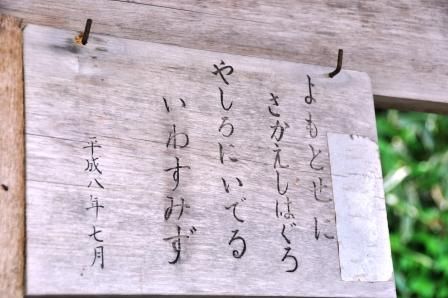 よもとせに
さかえしはぐろ
やしろにいでる
いわすみず
平成八年七月